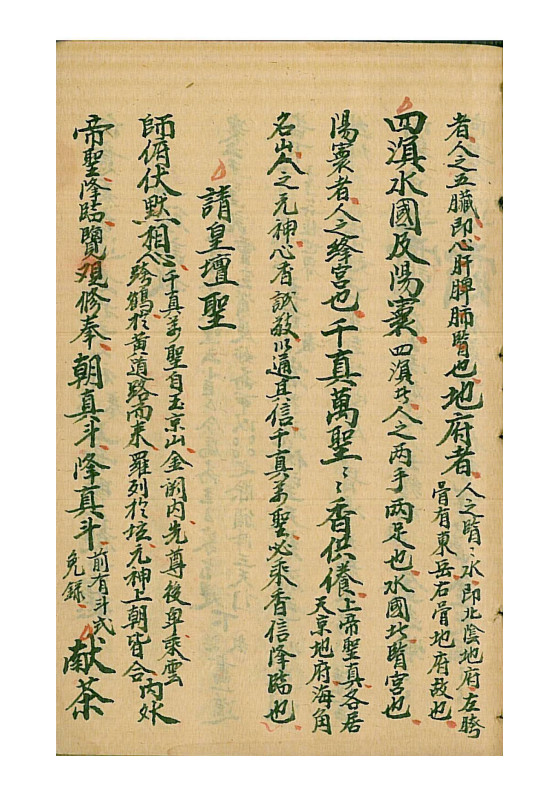 者人之五臟即心肝脾肺腎也地府者
人之腎〻水即北陰地府左膀
骨有東岳右骨地府故也
四瀆水國及陽寰四瀆者人之两手两足也水國北腎宮也
陽寰者人之絳宮也千真萬聖〻〻香供養
上帝聖真各居
天京地府海角
名山人之元神心香誠敬以通其信千真万聖必乘香信降臨也
請皇壇聖
師俯伏默相
千真万聖自玉京山金闕内先尊後卑乘雲
跨鶴於黄道路而来羅列於坛元神上朝皆合
帝聖降臨覽观修奉朝真斗降真斗
前有斗式
免録
献茶